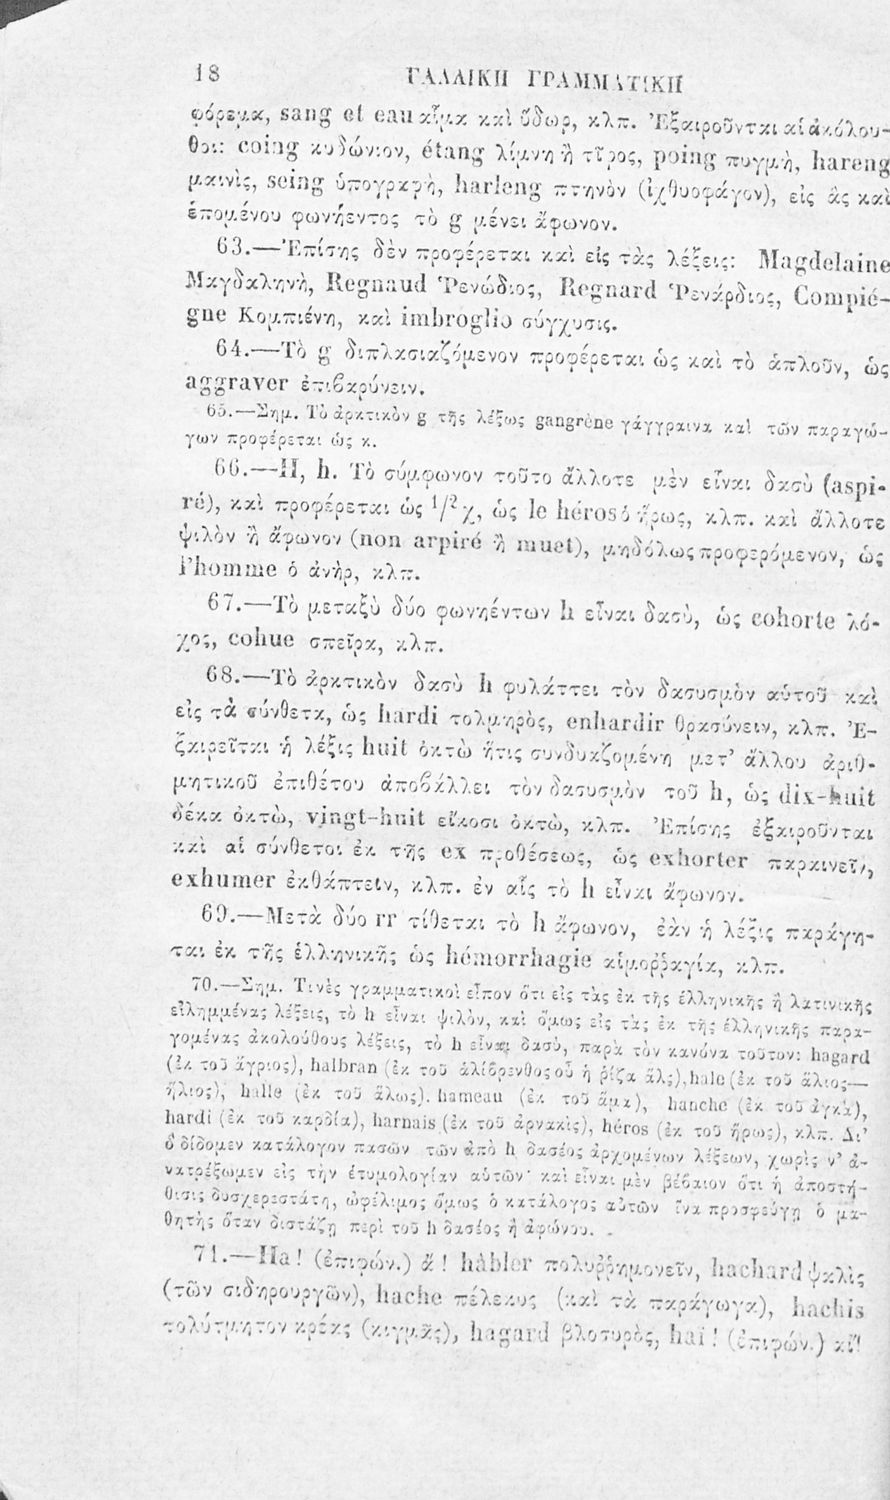 18 ΓΑΛΛΙΚΗ ΓΡΑΜΜΑΤΙΚΗ
φόρεμα, sang et eau αἷμα καὶ ὕδωρ, κλπ. Ἐξαιροῦνται αἱ ἀκόλου-
θοι: coing κυδώνιον, étang λίμνη ἢ τῖφος, poing πυγμὴ, hareng
μαινὶς, seing ὑπογραφὴ, harleng πτηνὸν (ἰχθυοφάγον), εἰς ἃς καὶ
ἑπομένου φωνήεντος τὸ g μένει ἄφωνον.
63.—Ἐπίσης δὲν προφέρεται καὶ εἰς τὰς λέξεις: Magdelaine
Μαγδαληνὴ, Regnaud Ῥενώδιος, Regnard Ῥενάρδιος, Compié-
gne Κομπιένη, καὶ imbroglio σύγχυσις.
64.—Τὸ g διπλασιαζόμενον προφέρεται ὡς καὶ τὸ ἁπλοῦν, ὡς
aggraver ἐπιβαρύνειν.
65.—Σημ. Τὸ ἀρκτικὸν g τῆς λέξεως gangrène γάγγραινα καὶ τῶν παραγώ-
γων προφέρεται ὡς κ.
66.—H, h. Τὸ σύμφωνον τοῦτο ἄλλοτε μὲν εἶναι δασὺ (aspi-
ré), καὶ προφέρεται ὡς 1/2 χ, ὡς le héros ὁ ἥρως, κλπ. καὶ ἄλλοτε
ψιλὸν ἢ ἄφωνον (non arpiré ἢ muet), μηδόλως προφερόμενον, ὡς
l'homme ὁ ἀνὴρ, κλπ.
67.—Τὸ μεταξὺ δύο φωνηέντων h εἶναι δασὺ, ὡς cohorte λό-
χος, cohue σπεῖρα, κλπ.
68.—Τὸ ἀρκτικὸν δασὺ h φυλάττει τὸν δασυσμὸν αὑτοῦ καὶ
εἰς τὰ σύνθετα, ὡς hardi τολμηρὸς, enhardir θρασύνειν, κλπ. Ἐ-
ξαιρεῖται ἡ λέξις huit ὀκτὼ ἥτις συνδυαζομένη μετ' ἄλλου ἀριθ-
μητικοῦ ἐπιθέτου ἀποβάλλει τὸν δασυσμὸν τοῦ h, ὡς dix-huit
δέκα ὀκτὼ, vingt-huit εἴκοσι ὀκτὼ, κλπ. Ἐπίσης ἐξαιροῦνται
καὶ αἱ σύνθετοι ἐκ τῆς ex προθέσεως, ὡς exhorter παρκινεῖν,
exhumer ἐκθάπτειν, κλπ. ἐν αἷς τὸ h εἶναι ἄφωνον.
69.—Μετὰ δύο rr τίθεται τὸ h ἄφωνον, ἐὰν ἡ λέξις παράγη-
ται ἐκ τῆς ἑλληνικῆς ὡς hémorrhagie αἱμοῤῥαγία, κλπ.
70.—Σημ. Τινὲς γραμματικοὶ εἶπον ὅτι εἰς τὰς ἐκ τῆς ἑλληνικῆς ἢ λατινικῆς
εἰλημμένας λέξεις, τὸ h εἶναι ψιλὸν, καὶ ὅμως εἰς τὰς ἐκ τῆς ἑλληνικῆς παρα-
γομένας ἀκολούθους λέξεις, τὸ h εἶναι δασὺ, παρὰ τὸν κανόνα τοῦτον: hagard
(ἐκ τοῦ ἄγριος), halbran (ἐκ τοῦ ἁλίβρενθος οὗ ἡ ῥίζα ἅλς), hale (ἐκ τοῦ ἅλιος—
ἥλιος), halle (ἐκ τοῦ ἅλως). hameau (ἐκ τοῦ ἅμα), hanche (ἐκ τοῦ ἀγκὴ),
hardi (ἐκ τοῦ καρδία), harnais (ἐκ τοῦ ἀρνακὶς), héros (ἐκ τοῦ ἥρως), κλπ. Δι'
ὃ δίδομεν κατάλογον πασῶν τῶν ἀπὸ h δασέος ἀρχομένων λέξεων, χωρὶς ν' ἀ-
νατρέξωμεν εἰς τὴν ἐτυμολογίαν αὐτῶν· καὶ εἶναι μὲν βέβαιον ὅτι ἡ ἀποστή-
θισις δυσχερεστάτη, ὠφέλιμος ὅμως ὁ κατάλογος αὐτῶν ἵνα προσφεύγῃ ὁ μα-
θητὴς ὅταν διστάζῃ περὶ τοῦ h δασέος ἢ ἀφώνου.
71.—Ha! (ἐπιφών.) ἄ! hâbler πολυῤῥημονεῖν, hachard ψαλὶς
(τῶν σιδηρουργῶν), hache πέλεκυς (καὶ τὰ παράγωγα), hachis
πολύτμητον κρέας (κιγμᾶς), hagard βλοσυρὸς, hai! (ἐπιφών.) αἴ!